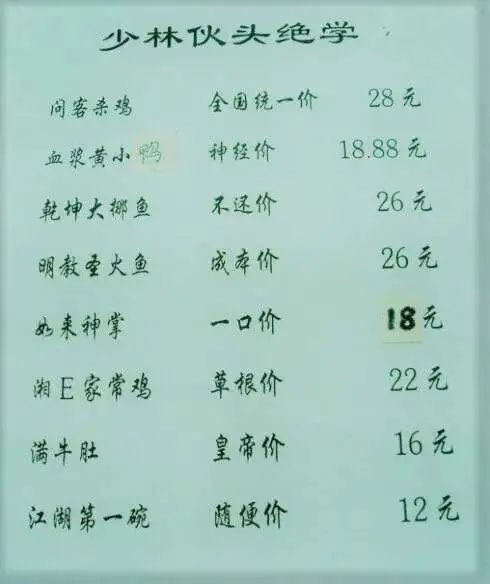 少林伙头绝学
问客杀鸡 全国统一价 28元
血浆黄小鸭 神经价 18.88元
乾坤大挪鱼 不还价 26元
明教圣火鱼 成本价 26元
如来神掌 一口价 18元
湘E家常鸡 草根价 22元
满牛肚 皇帝价 16元
江湖第一碗 随便价 12元